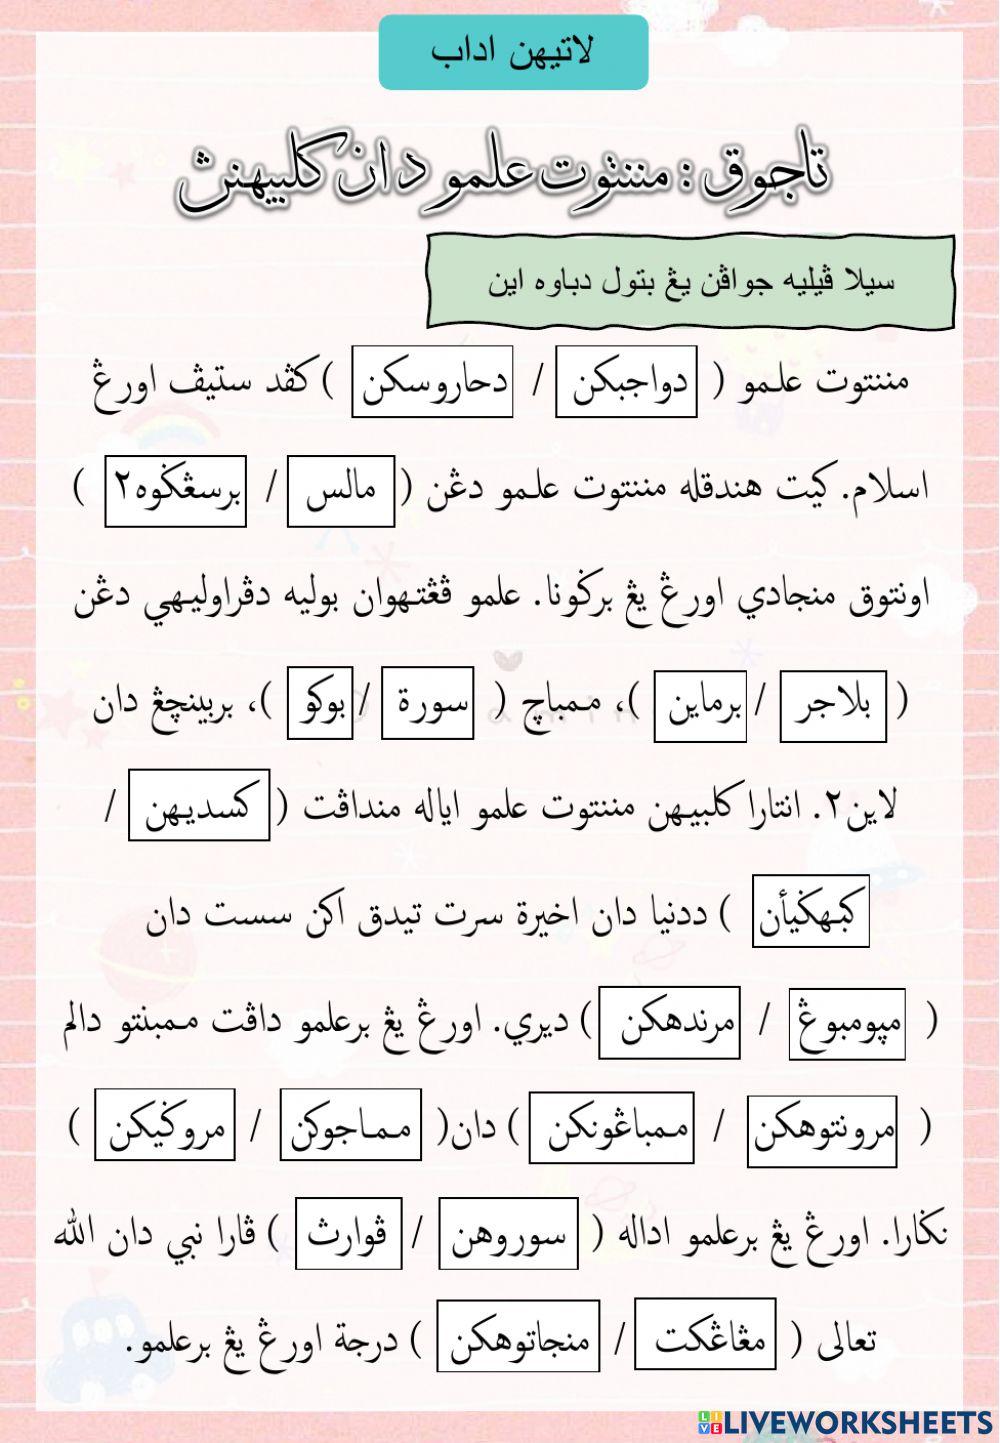 لاتيهن اداب
تاجوق : مننتوت علمو دان كلبيهنڽ
سيلا ڤيليه جواڤن يڠ بتول دباوه اين
مننتوت علمو ( دواجبكن / دحاروسكن ) كڤد ستيڤ اورڠ
اسلام. كيت هندقله مننتوت علمو دڠن ( مالس / برسڠݢوه٢ )
اونتوق منجادي اورڠ يڠ برݢونا. علمو ڤڠتهوان بوليه دڤراوليهي دڠن
( بلاجر / برماين )، ممباچ ( سورة / بوكو )، بربينچڠ دان
لاين٢. انتارا كلبيهن مننتوت علمو اياله منداڤت ( كسديهن /
كبهݢيأن ) ددنيا دان اخيرة سرت تيدق اكن سست دان
( مڽومبوڠ / مرندهكن ) ديري. اورڠ يڠ برعلمو داڤت ممبنتو دالم
( مرونتوهكن / ممباڠونكن ) دان ( مماجوكن / مروݢيكن )
نݢارا. اورڠ يڠ برعلمو اداله ( سوروهن / ڤوارث ) ڤارا نبي دان الله
تعالى ( مڠاڠكت / منجاتوهكن ) درجة اورڠ يڠ برعلمو.
LIVEWORKSHEETS